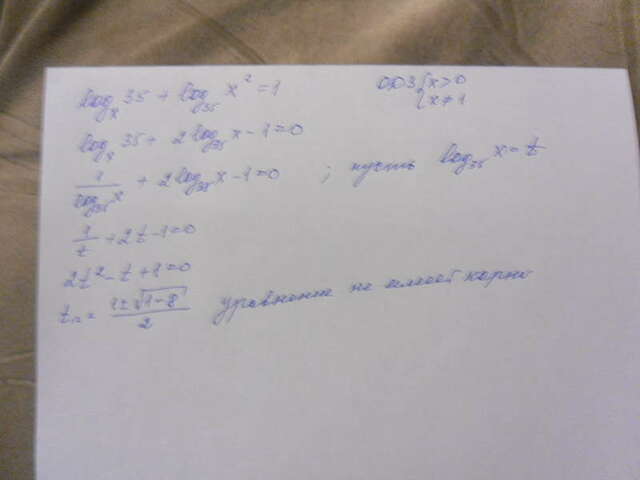 logₓ35 + log₃₅x² = 1 ОДЗ { x>0
x≠1
logₓ35 + 2log₃₅x - 1 = 0
1/log₃₅x + 2log₃₅x - 1 = 0 ; пусть log₃₅x = t
1/t + 2t - 1 = 0
2t² - t + 1 = 0
t₁,₂ = (1±√(1-8))/2 уравнение не имеет корни